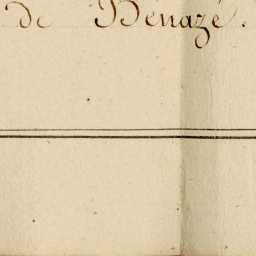 de Bénazé.